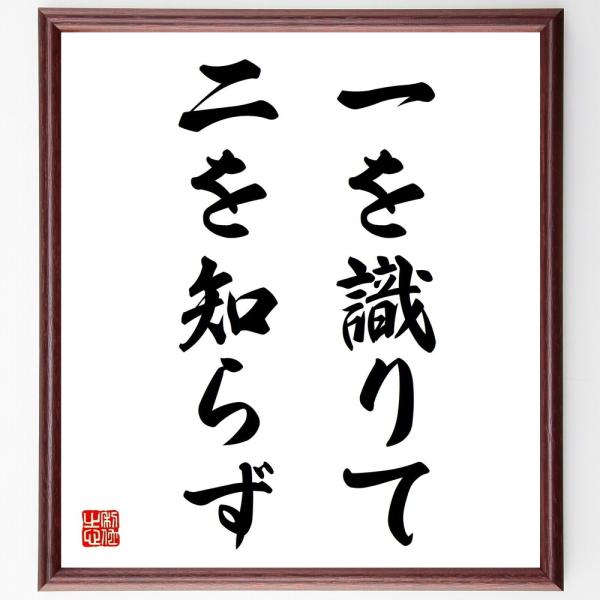 一を識りて
二を知らず